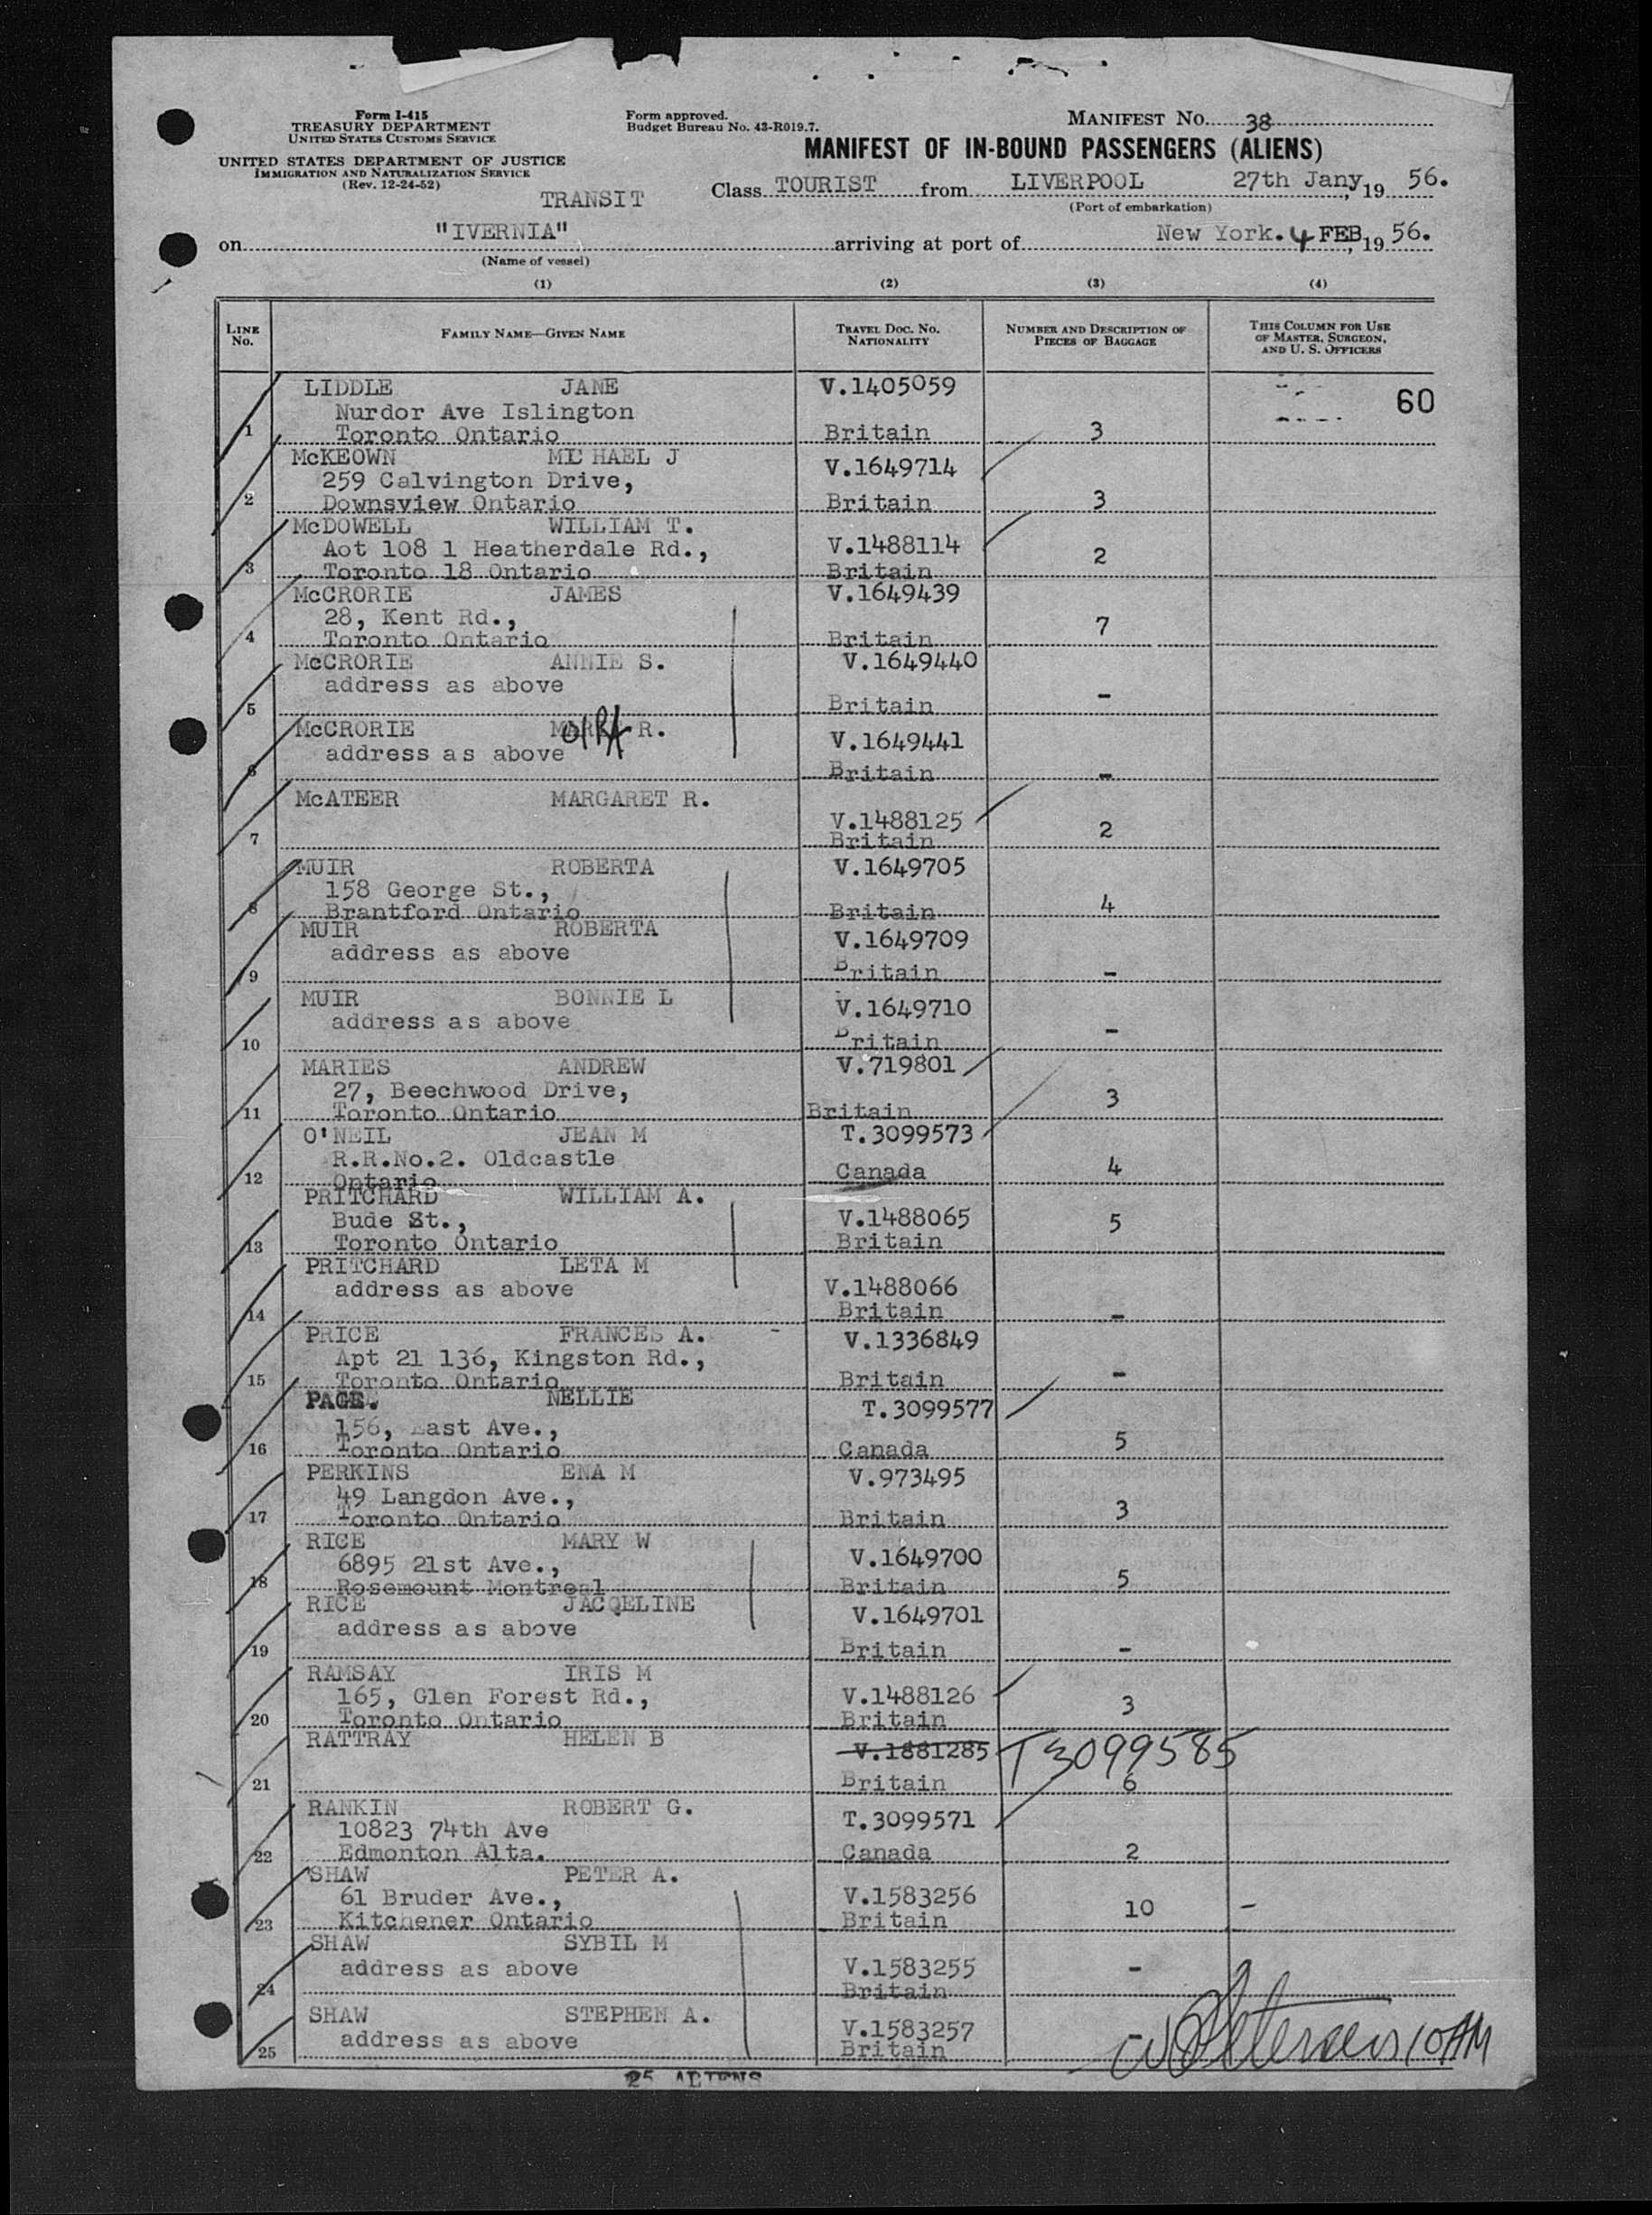 Form I-415
TREASURY DEPARTMENT
UNITED STATES CUSTOMS SERVICE
UNITED STATES DEPARTMENT OF JUSTICE
IMMIGRATION AND NATURALIZATION SERVICE
(Rev. 12-24-52)
Form approved.
Budget Bureau No. 43-R019.7.
MANIFEST No. 38
MANIFEST OF IN-BOUND PASSENGERS (ALIENS)
TRANSIT
Class TOURIST from LIVERPOOL 27th Jany, 19 56.
(Port of embarkation)
on "IVERNIA" arriving at port of New York. 4 FEB, 19 56.
(Name of vessel)
(1) (2) (3) (4)
LINE No. FAMILY NAME—GIVEN NAME TRAVEL DOC. NO. NATIONALITY NUMBER AND DESCRIPTION OF PIECES OF BAGGAGE THIS COLUMN FOR USE OF MASTER, SURGEON, AND U. S. OFFICERS
LIDDLE JANE V.1405059
60
Nurdor Ave Islington
1 Toronto Ontario Britain 3
McKEOWN MICHAEL J V.1649714
259 Calvington Drive,
2 Downsview Ontario Britain 3
McDOWELL WILLIAM T.
Aot 108 1 Heatherdale Rd., V.1488114
3 Toronto 18 Ontario Britain 2
McCRORIE JAMES V.1649439
28, Kent Rd.,
4 Toronto Ontario Britain 7
McCRORIE ANNIE S. V.1649440
address as above
5 Britain -
McCRORIE R.
address as above V.1649441
6 Britain -
McATEER MARGARET R.
V.1488125
7 Britain 2
MUIR ROBERTA V.1649705
158 George St.,
8 Brantford Ontario Britain 4
MUIR ROBERTA V.1649709
address as above
9 Britain -
MUIR BONNIE L V.1649710
address as above
10 Britain -
MARIES ANDREW V.719801
27, Beechwood Drive,
11 Toronto Ontario Britain 3
O'NEIL JEAN M T.3099573
R.R.No.2. Oldcastle
12 Ontario Canada 4
PRITCHARD WILLIAM A.
Bude St., V.1488065 5
13 Toronto Ontario Britain
PRITCHARD LETA M
address as above V.1488066
14 Britain -
PRICE FRANCES A. - V.1336849
Apt 21 136, Kingston Rd.,
15 Toronto Ontario Britain -
PAGE. NELLIE T.3099577
156, East Ave.,
16 Toronto Ontario Canada 5
PERKINS ENA M V.973495
49 Langdon Ave.,
17 Toronto Ontario Britain 3
RICE MARY W
6895 21st Ave., V.1649700
18 Rosemount Montreal Britain 5
RICE JACQELINE V.1649701
address as above
19 Britain -
RAMSAY IRIS M
165, Glen Forest Rd., V.1488126 3
20 Toronto Ontario Britain
RATTRAY HELEN B V.1881285 T3099585
21 Britain 6
RANKIN ROBERT G. T.3099571
10823 74th Ave
22 Edmonton Alta. Canada 2
SHAW PETER A.
61 Bruder Ave., V.1583256
23 Kitchener Ontario Britain 10 -
SHAW SYBIL M
address as above V.1583255 -
24 Britain
SHAW STEPHEN A. V.1583257 -
address as above
25 Britain
10AM
25 ALIENS